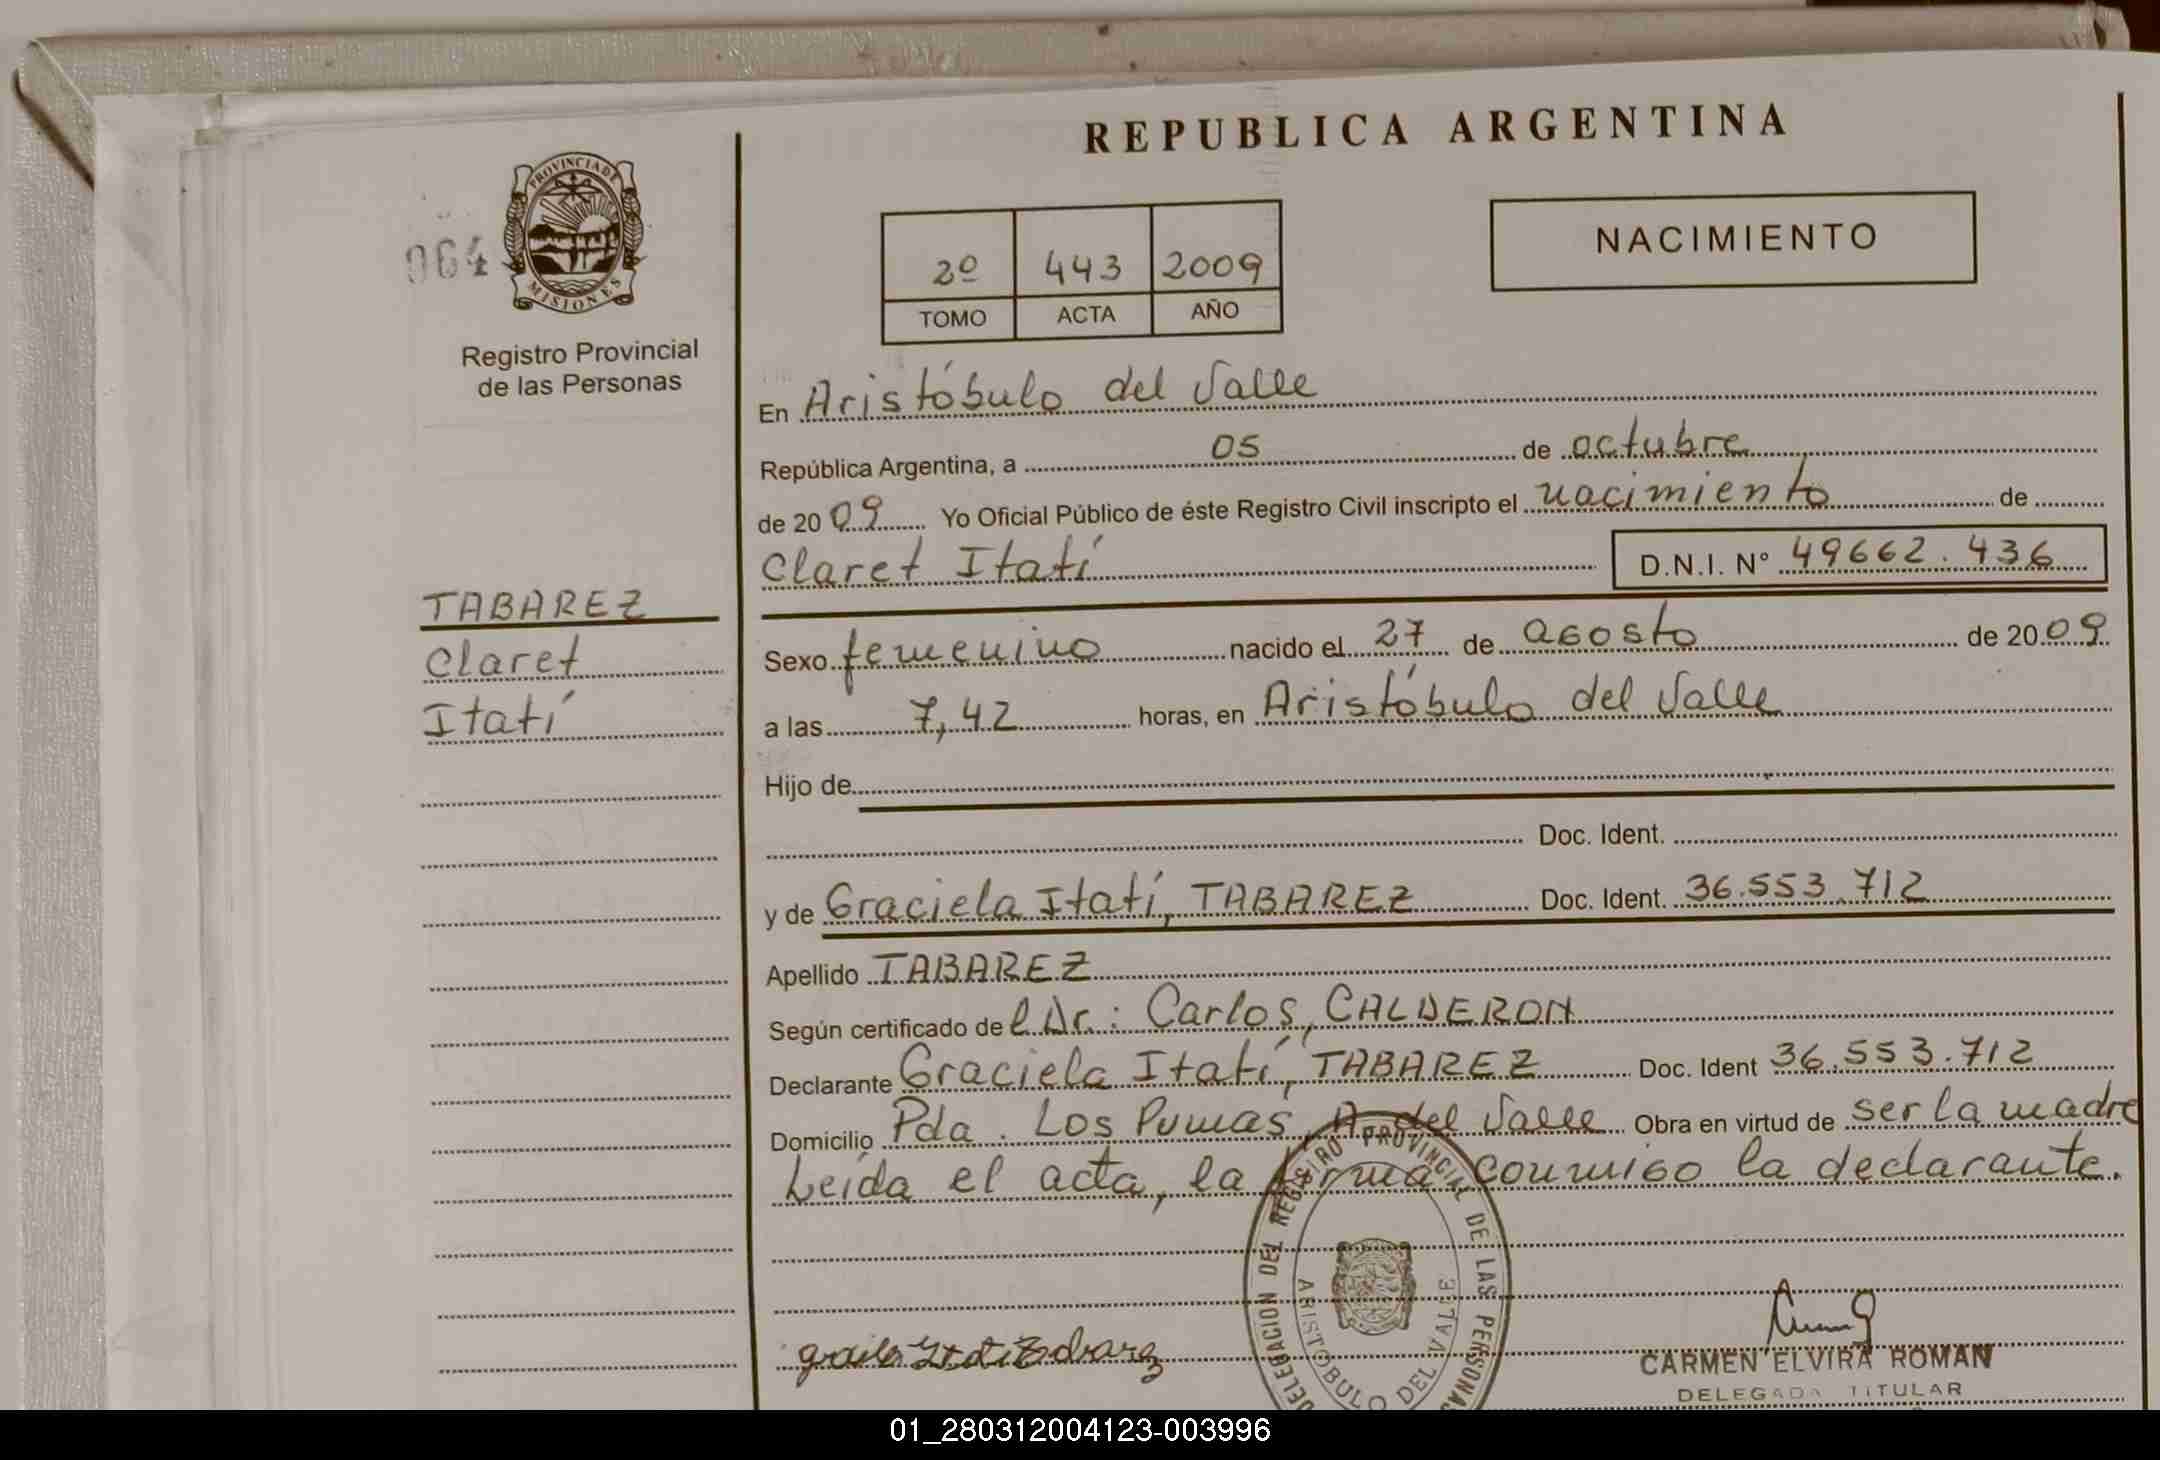 REPUBLICA ARGENTINA
PROVINCIA DE
MISIONES
064
Registro Provincial
de las Personas
2º 443 2009
TOMO ACTA AÑO
NACIMIENTO
En Aristóbulo del Valle
República Argentina, a 05 de octubre
de 2009 Yo Oficial Público de éste Registro Civil inscripto el nacimiento de
Claret Itatí D.N.I. Nº 49662.436
TABAREZ
Claret
Itatí
Sexo femenino nacido el 27 de agosto de 2009
a las 7,42 horas, en Aristóbulo del Valle
Hijo de
Doc. Ident.
y de Graciela Itatí, TABAREZ Doc. Ident. 36.553.712
Apellido TABAREZ
Según certificado del Dr.: Carlos, CALDERON
Declarante Graciela Itatí, TABAREZ Doc. Ident 36.553.712
Domicilio Pda. Los Pumas, A. del Valle Obra en virtud de ser la madre
Leída el acta, la firma conmigo la declarante.
DELEGACION DEL REGISTRO PROVINCIAL DE LAS PERSONAS
ARISTOBULO DEL VALLE
CARMEN ELVIRA ROMAN
DELEGADA TITULAR
01_280312004123-003996